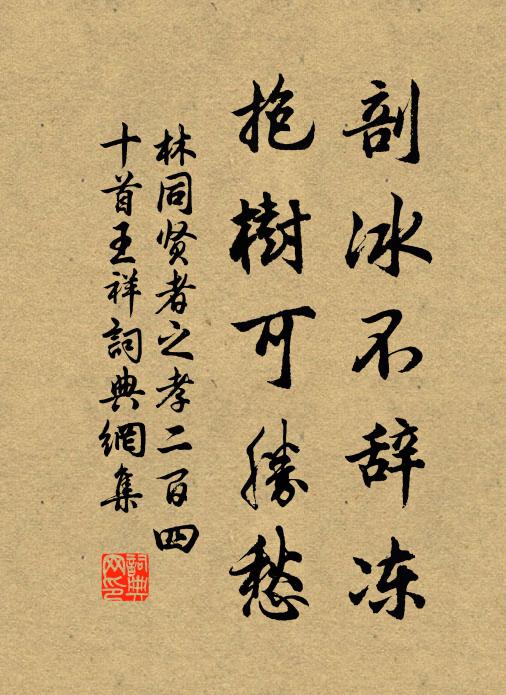 剖冰不辞冻
抱樹可勝愁
林同贤者之孝二百四
十首王祥詞典網集
詞典
网印